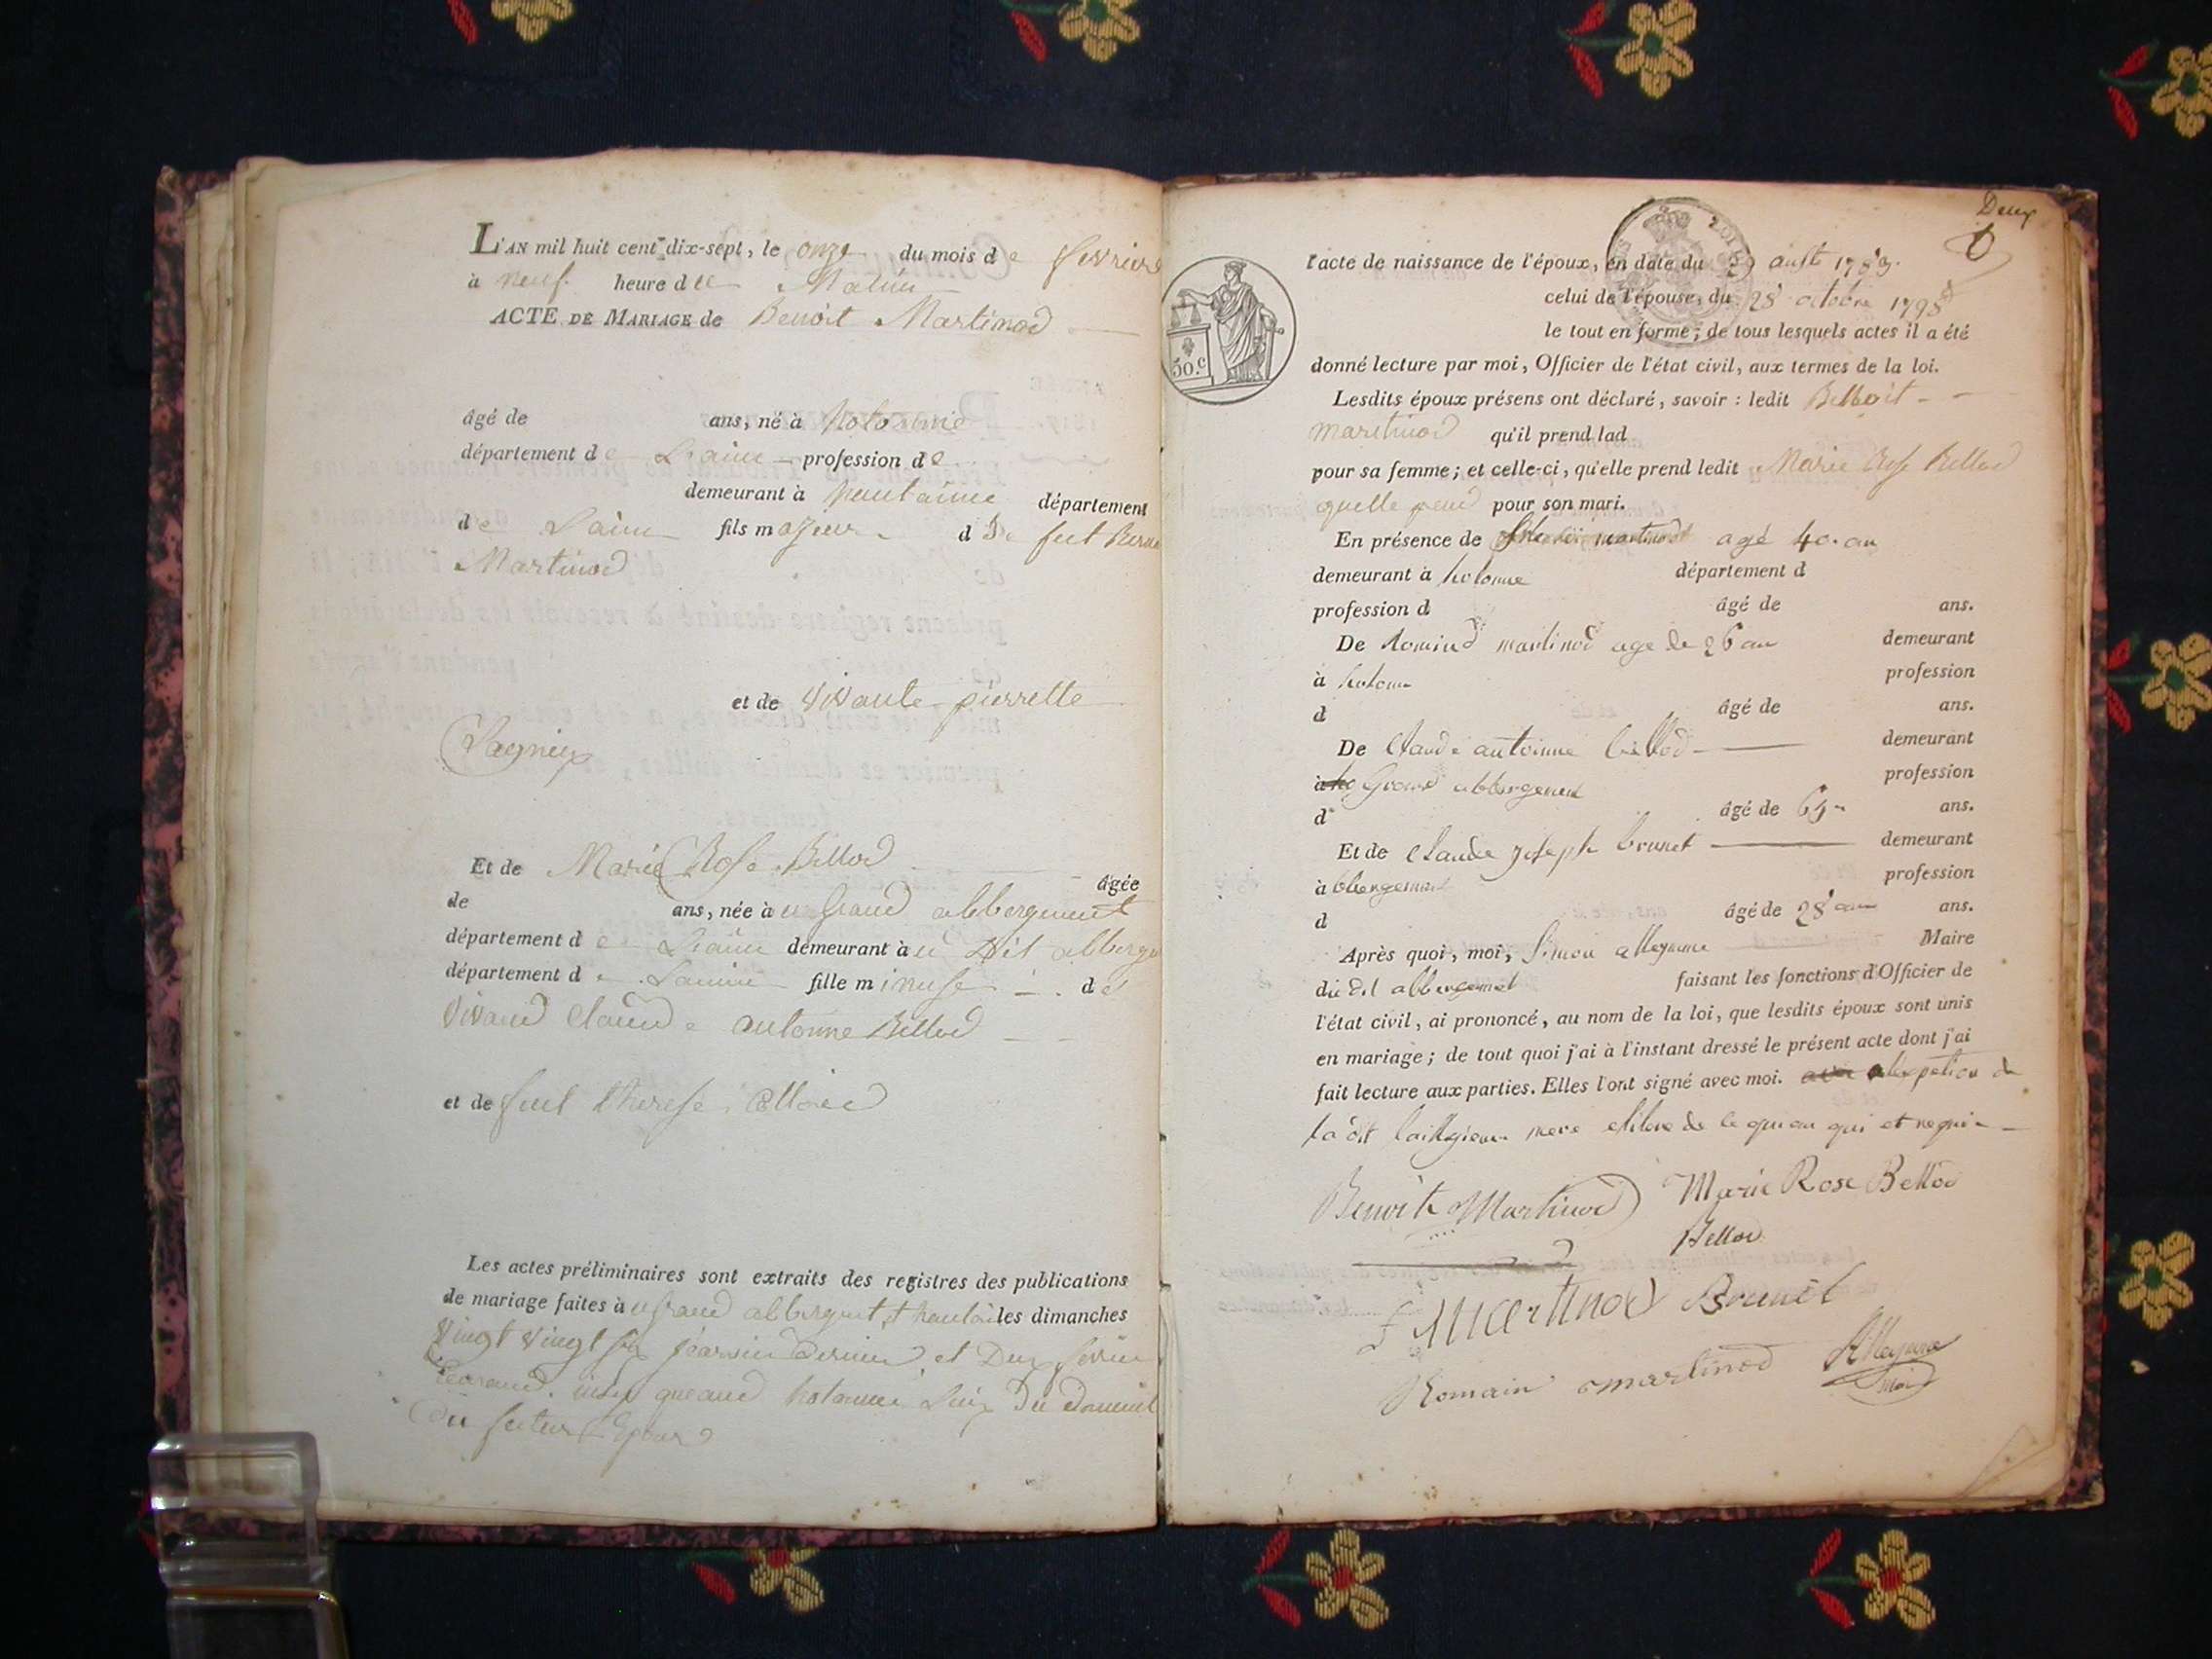 L'AN mil huit cent dix-sept, le onze du mois de fevrier
à neuf heure du Matin
ACTE DE MARIAGE de Benoit Martinod
âgé de ans, né à hotonne
département de Lain profession de
demeurant à hautaine département
de Lain fils majeur de feut
Martinod
et de vivante pierrette
Et de Marie Rose Bellod âgée
de ans, née à u grand abbergement
département de Lain demeurant à u dit abberge
département de Lain fille mineuse de
vivand Claude antoinne Bellod
et de feut therese
Les actes préliminaires sont extraits des registres des publications
de mariage faites à u grand les dimanches
vingt vingt six janvier dernier et Deux fevrier
du futur Epoux
Deux
l'acte de naissance de l'époux, en date du 29 1783.
celui de l'épouse, du 28 octobre 1798
le tout en forme; de tous lesquels actes il a été
donné lecture par moi, Officier de l'état civil, aux termes de la loi.
50.c
Lesdits époux présens ont déclaré, savoir: ledit Bennoit
martinod qu'il prend lad
pour sa femme; et celle-ci, qu'elle prend ledit Marie Rose Bellod
quelle prend pour son mari.
En présence de martinod agé 40. an
demeurant à hotonne département d
profession d âgé de ans.
De Romind martinod age de 26 an demeurant
à hotonne profession
d âgé de ans.
De Claude antoinne Bellod demeurant
à grand abbergement profession
d âgé de ans.
Et de Claude joseph brunet demeurant
à bbergement profession
d âgé de 28 an ans.
Après quoi, moi, Simon alleymane Maire
du dit abbergemet faisant les fonctions d'Officier de
l'état civil, ai prononcé, au nom de la loi, que lesdits époux sont unis
en mariage; de tout quoi j'ai à l'instant dressé le présent acte dont j'ai
fait lecture aux parties. Elles l'ont signé avec moi.
la dit mere de qui et requi
Benoit Martinod Marie Rose Bellod
Bellod
F Martinod Brunet
Romain martinod